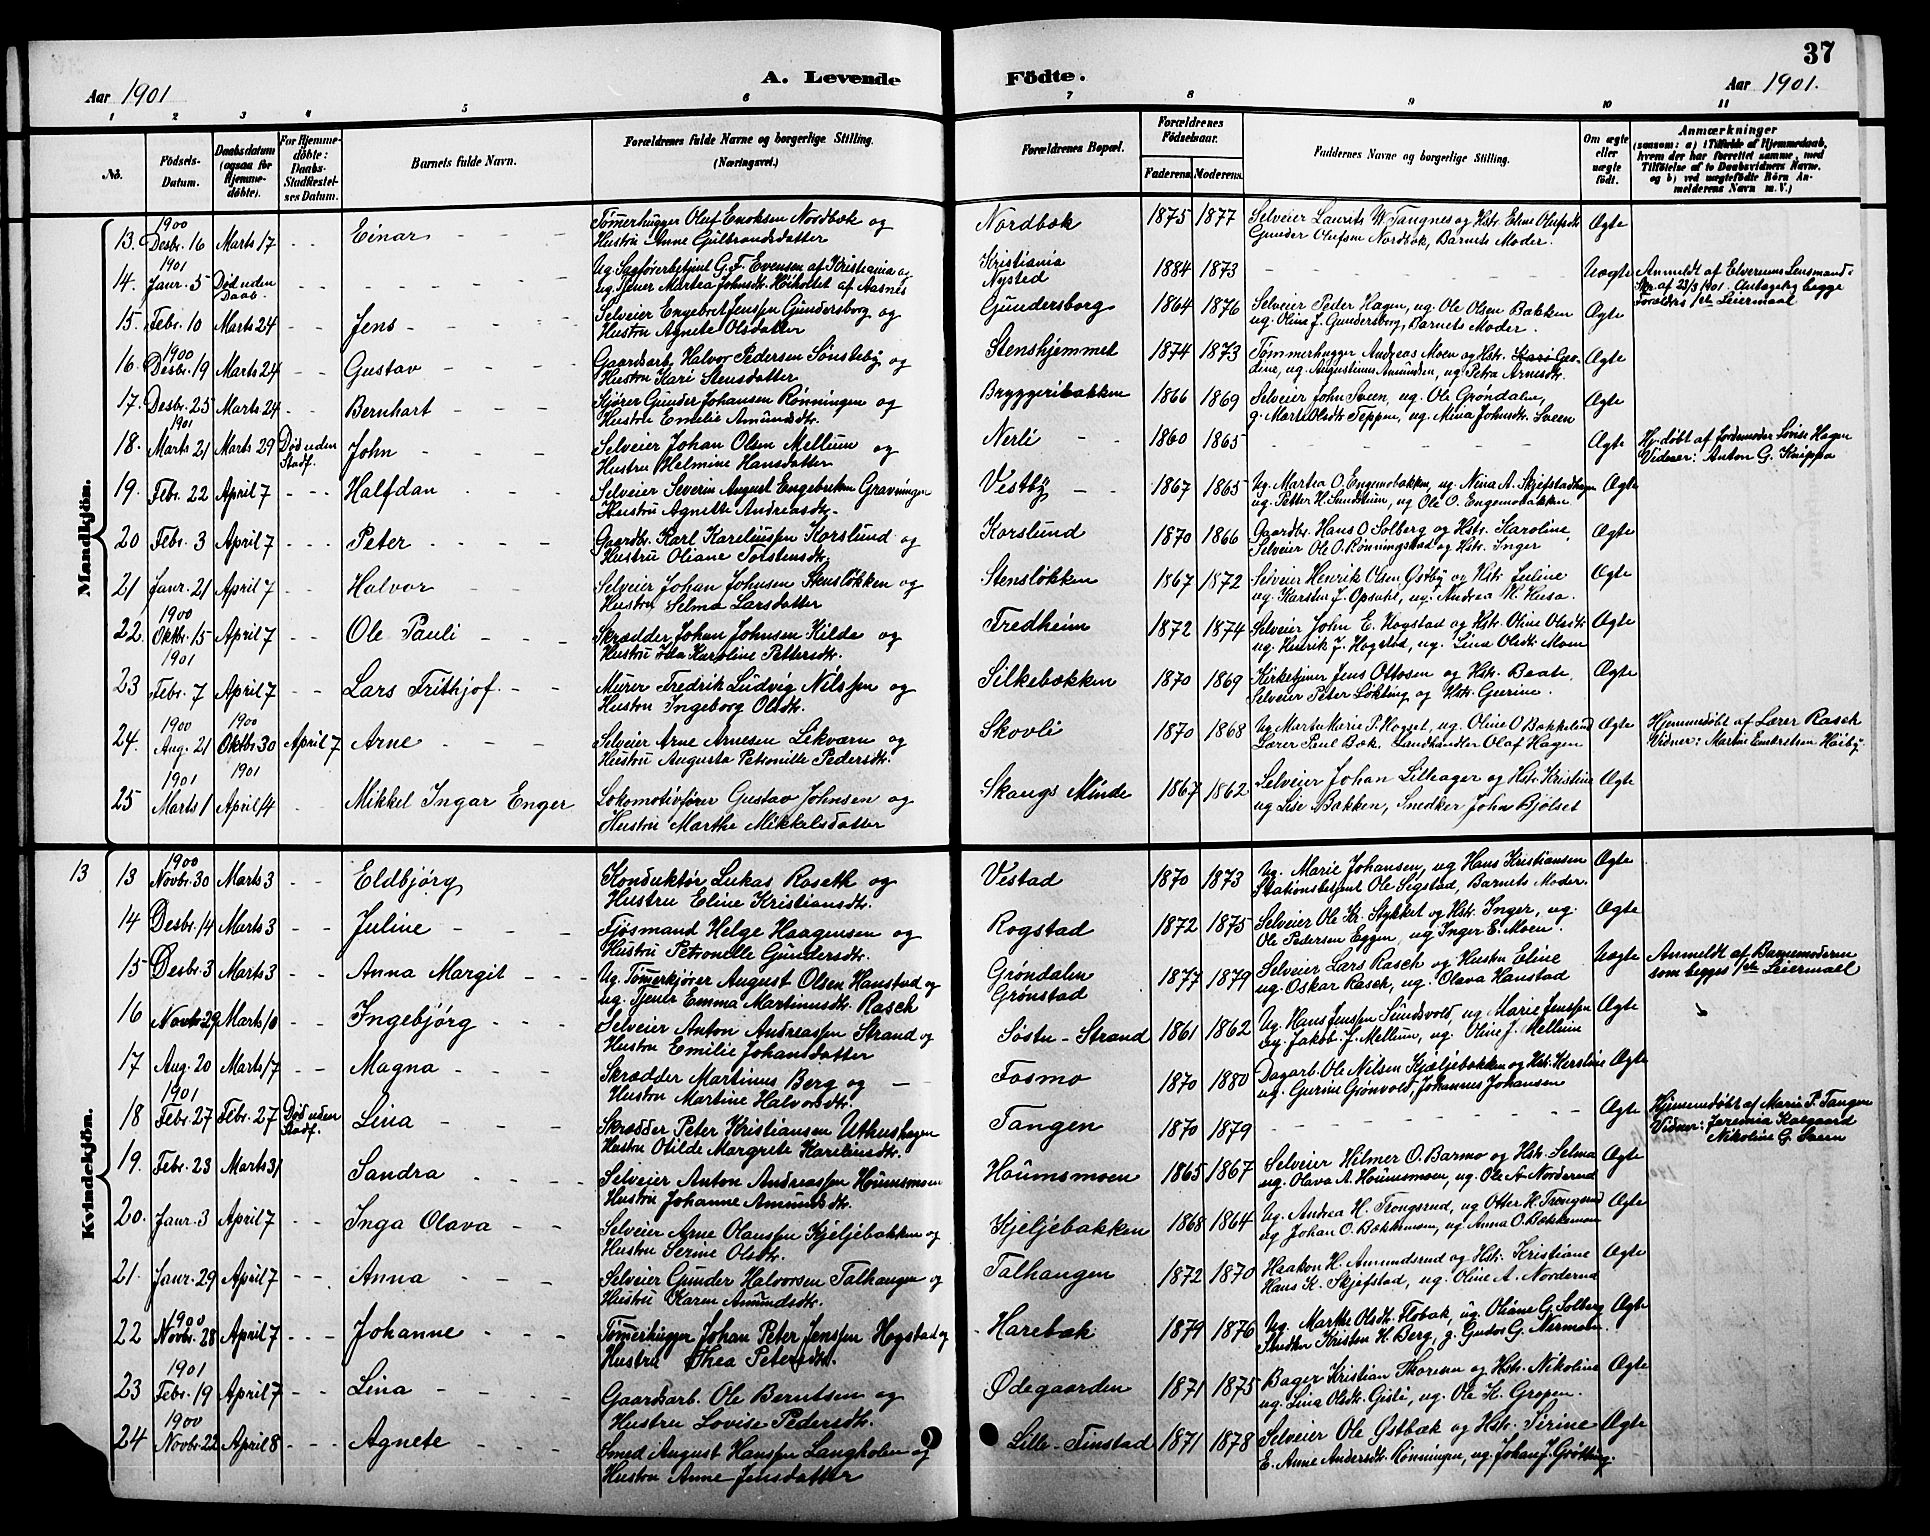 37
A. Levende Födte.
Aar 1901
Aar 1901.
1 2 3 4 5 6 7 8 9 10 11
No.
Födsels-Datum.
Daabsdatum (ogsaa for Hjemmedöbte).
For Hjemmedöbte: Daabs-Stadfestelses Datum.
Barnets fulde Navn.
Forældrenes fulde Navne og borgerlige Stilling. (Næringsvei.)
Forældrenes Bopæl.
Forældrenes Födselsaar.
Faderens. Moderens.
Faddernes Navne og borgerlige Stilling.
Om ægte eller uægte födt.
Anmærkninger
(saasom: a) i Tilfælde af Hjemmedaab, hvem der har forrettet samme, med Tilföielse af to Daabsvidners Navne, og b) ved uægtefödte Börn Anmelderens Navn m. V.)
Mandkjön.
13. 1900 Desbr. 16 Marts 17 - - Einar
Tømerhugger Oluf Enoksen Nordbæk og
Hustru Anne Gulbrandsdatter
Nordbæk 1875 1877
Selveier Laurits W. Tangnes og Hstr. Eline Olufsdtr
Gunder Olufsen Nordbæk, Barnets Moder. Ægte
14. 1901 Janr. 5 Død uden Daab.
Ug. Sagførerbetjent G. F. Evensen af Kristiania og
ug. Tjener Martea Johnsdtr. Høiholtet af Aasnes
Kristiania
Nysted 1884 1873 Uægte
Anmeldt af Elverums Lensmand i
Skr. af 23/3 1901. Antagelig begge
Forældres 1ste Leiermaal
15. Febr. 10 Marts 24 - - Jens
Selveier Engebret Jenssen Gundersborg og
Hustru Agnete Olsdatter
Gundersborg 1864 1876
Selveier Peder Hagen, ug. Ole Olsen Bakken
ug. Oline J. Gundersborg, Barnets Moder. Ægte
16. 1900 Desbr. 19 Marts 24 - - Gustav
Gaardsarb. Halvor Pedersen Sønsteby og
Hustru Kari Stensdatter
Stenshjemmet 1874 1873
Tømmerhugger Andreas Moen og Hstr.
ug. Augustinus Amundsen, ug. Petra Arnesdtr. Ægte
17. Desbr. 25 Marts 24 - - Bernhart
Kjører Gunder Johansen Rønningen og
Hustru Emelie Amundsdtr.
Bryggeribakken 1866 1869
Selveier John Sveen, ug. Ole Grøndalen,
g. Marte Olsdtr. Teppen, ug. Mina Johnsdtr. Sveen Ægte
18. 1901 Marts 21 Marts 29 Død uden Stadf. John
Selveier Johan Olsen Mellum og
Hustru Helmine Hansdatter
Nerli 1860 1865 Ægte
Hj.døbt af Jordemoder Lovise Hagen
Vidner: Anton G. Knippa
19. Febr. 22 April 7 Halfdan
Selveier Severin August Engebretsen Gravningen
Hustru Agnette Andreasdtr.
Vestby 1867 1865
Ug. Martea O. Engemobakken, ug. Nina A. Skjefstadhagen
ug. Petter H. Sundheim, ug Ole O. Engemobakken Ægte
20 Febr. 3 April 7 Peter
Gaardbr. Karl Kareliussen Korslund og
Hustru Oliane Torstensdtr.
Korslund 1870 1866
Gaardbr. Hans O. Solberg og Hstr. Karoline,
Selveier Ole O. Rønningstad og Hstr. Inger Ægte
21 Janr. 21 April 7 - - Halvor
Selveier Johan Johnsen Stensløkken og
Hustru Selma Larsdatter
Stensløkken 1867 1872
Selveier Henrik Olsen Østby og Hstr. Juline
ug. Karsten J. Opsahl, ug. Andrea M. Kusa Ægte
22. 1900 Oktbr. 15 April 7 - - Ole Pauli
Skrædder Johan Johnsen Kilde og
Hustru Ida Karoline Pettersdtr.
Fredheim 1872 1874
Selveier John E. Hogstad og Hstr. Oline Olsdtr
ug. Henrik J. Hogstad, ug. Lina Olsdtr. Moen Ægte
23 1901 Febr. 7 April 7 - - Lars Frithjof.
Murer Fredrik Ludvig Nilssen og
Hustru Ingeborg Olsdtr.
Silkebækken 1870 1869
Kirketjener Jens Ottosen og Hstr. Beate,
Selveier Peter Løkting og Hstr. Gurine. Ægte
24. 1900 Aug. 21 1900 Oktbr. 30 April 7 Arne
Selveier Arne Arnesen Lekværn og
Hustru Augusta Petronille Pedersdtr.
Skovli 1870 1868
Ug. Marte Marie P. Hogset, ug. Oline O. Bakkelund
Lærer Paul Bæk, Landhandler Olaf Hagen Ægte
Hjemmedøbt af Lærer Rasch
Vidner: Martin Embretsen Høiby
25 1901 Marts 1 1901 April 14 Mikkel Ingar Enger
Lokomotivfører Gustav Johnsen og
Hustru Marthe Mikkelsdatter
Skaugs Minde 1867 1862
Selveier Johan Lilleager og Hstr. Kristine
ug Lise Bakken, Snedker John Bjølset Ægte
Kvindekjön.
13 13 1900 Novbr. 30 Marts 3 - - Eldbjörg
Konduktør Lukas Roseth og
Hustru Eline Kristiansdtr.
Vestad 1870 1873
Ug. Marie Johansen, ug Hans Kristiansen
Stationsbetjent Ole Segstad, Barnets Moder. Ægte
14 Desbr. 14 Marts 3 - - Juline
Fjøsmand Helge Haagensen og
Hustru Petronelle Gundersdtr.
Rogstad 1872 1875
Selveier Ole Kr. Stykket og Hstr. Inger, ug.
Ole Pedersen Eggen, ug Inger E. Moen. Ægte
15 Desbr. 3 Marts 3 - - Anna Margit
Ug. Tømerkjører August Olsen Hanstad og
ug. Tjener Emma Martinusdtr. Rasch
Grøndalen
Grønstad 1877 1879
Selveier Lars Rasch og Hustru Eline
ug. Oskar Rasch, ug. Olava Hanstad Uægte
Anmeldt af Barnemoderen
som begges 1ste Leiermaal
16 Novbr. 29 Marts 10 - - Ingebjörg
Selveier Anton Andreassen Strand og
Hustru Emilie Johansdatter
Søstu-Strand 1861 1862
Ug. Hans Jenssen Sundsvold, ug Marie Jenssen
ug. Jakob J. Mellum, ug. Oline J. Mellum Ægte
17 Aug. 20 Marts 17 - - Magna
Skrædder Martinus Berg og
Hustru Martine Halvorsdtr.
Fosmo 1870 1880
Dagarb. Ole Nilsen Kjæljebakken og Hstr. Kerstine
ug. Gurine Grønvold, Johannes Johansen Ægte
18 1901 Febr. 27 Febr. 27 Død uden Stadf. Lina
Skrædder Peter Kristiansen Uthushagen
Hustru Otilde Margrete Kareliusdtr.
Tangen 1870 1879 Ægte
Hjemmedøbt af Marie P. Tangen
Vidner: Jeremia Kalgaard
Nikoline G. Sveen
19. Febr. 23 Marts 31 Sandra
Selveier Anton Andreassen Houmsmoen
Hustru Johanne Amundsdtr.
Houmsmoen 1865 1867
Selveier Hilmer O. Barmo og Hstr. Selma
ug. Olava A. Houmsmoen, ug Ole A. Norderud Ægte
20. Janr. 3 April 7 - - Inga Olava
Selveier Arne Olaussen Kjeljebakken og
Hustru Serine Olsdtr.
Kjeljebakken 1868 1864
Ug. Andrea H. Trongsrud, ug Otter H. Trongsrud
ug Johan O. Bækkemoen, ug Anna O. Bækkemoen Ægte
21. Janr. 29 April 7 - - Anna
Selveier Gunder Halvorsen Talhaugen og
Hustru Karen Amundsdtr.
Talhaugen 1872 1870
Haakon H. Amundsrud og Hstr. Kristiane
Hans K. Skjefstad, ug. Oline A. Norderud Ægte
22 1900 Novbr. 28 April 7 - - Johanne
Tømerhugger Johan Peter Jenssen Hogstad og
Hustru Thea Petersdtr.
Harebæk 1879 1876
Ug. Marthe Olsdtr. Flobæk, ug. Oliane G. Solberg
Snedker Kristen H. Berg, g. Gudos G. Nermoen. Ægte
23 1901 Febr. 19 April 7 - - Lina
Gaardsarb. Ole Berntsen og
Hustru Lovise Pedersdtr.
Ødegaarden 1871 1875
Bager Kristian Thoresen og Hstr. Nikoline
ug. Lina Olsdtr. Gisli, ug. Ole K. Gropen. Ægte
24 1900 Novbr. 22 April 8 - - - Agnete
Smed August Hanssen Langholen og
Hustru Anne Jensdatter
Lille-Finstad 1871 1878
Selveier Ole Østbæk og Hstr. Sirine
E. Anne Andersdtr. Rønningen, ug. Johan J. Grøtting. Ægte